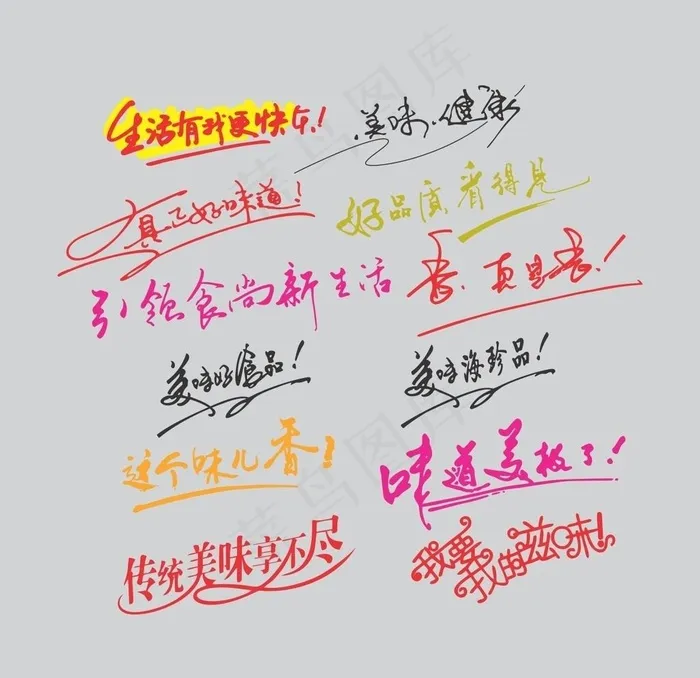 生活有我更快乐!
美味.健康
真正好味道!
好品质看得见
引领食尚新生活
香.真是香.!
美味好食品!
美味海珍品!
这个味儿香!
味道美极了!
传统美味享不尽
我要我的滋味!
菜鸟图库